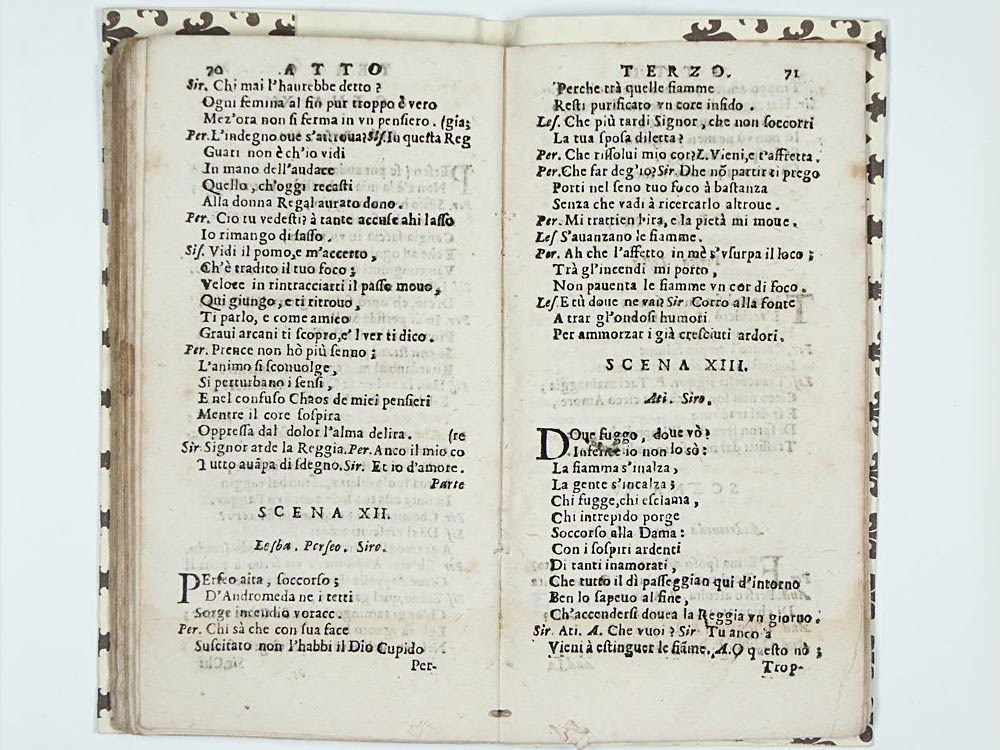 70 ATTO
Sir. Chi mai l'haurebbe detto ?
Ogni femina al fin pur troppo è vero
Mez'ora non si ferma in vn pensiero. (gia;
Per. L'indegno oue s'attroua? Sis. In questa Reg
Guari non è ch'io vidi
In mano dell'audace
Quello, ch'oggi recasti
Alla donna Regal aurato dono.
Per. Cio tu vedesti? à tante accuse ahi lasso
Io rimango di sasso.
Sis. Vidi il pomo, e m'accerto,
Ch'è tradito il tuo foco;
Veloce in rintracciarti il passo mouo,
Qui giungo, e ti ritrouo,
Ti parlo, e come amico
Graui arcani ti scopro, e'l ver ti dico.
Per. Prence non hò più senno;
L'animo si sconuolge,
Si perturbano i sensi,
E nel confuso Chaos de miei pensieri
Mentre il core sospira
Oppressa dal dolor l'alma delira. (re
Sir Signor arde la Reggia. Per. Anco il mio co
Tutto auãpa di sdegno. Sir. Et io d'amore.
Parte
SCENA XII.
Lesba. Perseo. Siro.
PErseo aita, soccorso;
D'Andromeda ne i tetti
Sorge incendio vorace.
Per. Chi sà che con sua face
Suscitato non l'habbi il Dio Cupido
Per-
TERZO. 71
Perche trà quelle fiamme
Resti purificato vn core infido.
Les. Che più tardi Signor, che non soccorri
La tua sposa diletta?
Per. Che rissolui mio cor? L. Vieni, e t'affretta.
Per. Che far deg'io? Sir. Dhe nõ partir ti prego
Porti nel seno tuo foco à bastanza
Senza che vadi à ricercarlo altroue.
Per. Mi trattien l'ira, e la pietà mi moue.
Les S'auanzano le fiamme.
Per. Ah che l'affetto in mè s'vsurpa il loco;
Trà gl'incendi mi porto,
Non pauenta le fiamme vn cor di foco.
Les. E tù doue ne vai? Sir. Corro alla fonte
A trar gl'ondosi humori
Per ammorzar i già cresciuti ardori.
SCENA XIII.
Ati. Siro.
DOue fuggo, doue vò?
Infelice io non lo sò:
La fiamma s'inalza,
La gente s'incalza;
Chi fugge, chi esclama,
Chi intrepido porge
Soccorso alla Dama:
Con i sospiri ardenti
Di tanti inamorati,
Che tutto il dì passeggian qui d'intorno
Ben lo sapeuo al fine,
Ch'accendersi douea la Reggia vn giorno.
Sir. Ati. A. Che vuoi? Sir Tu anco a
Vieni à estinguer le fiãme. A. O questo nò;
Trop-